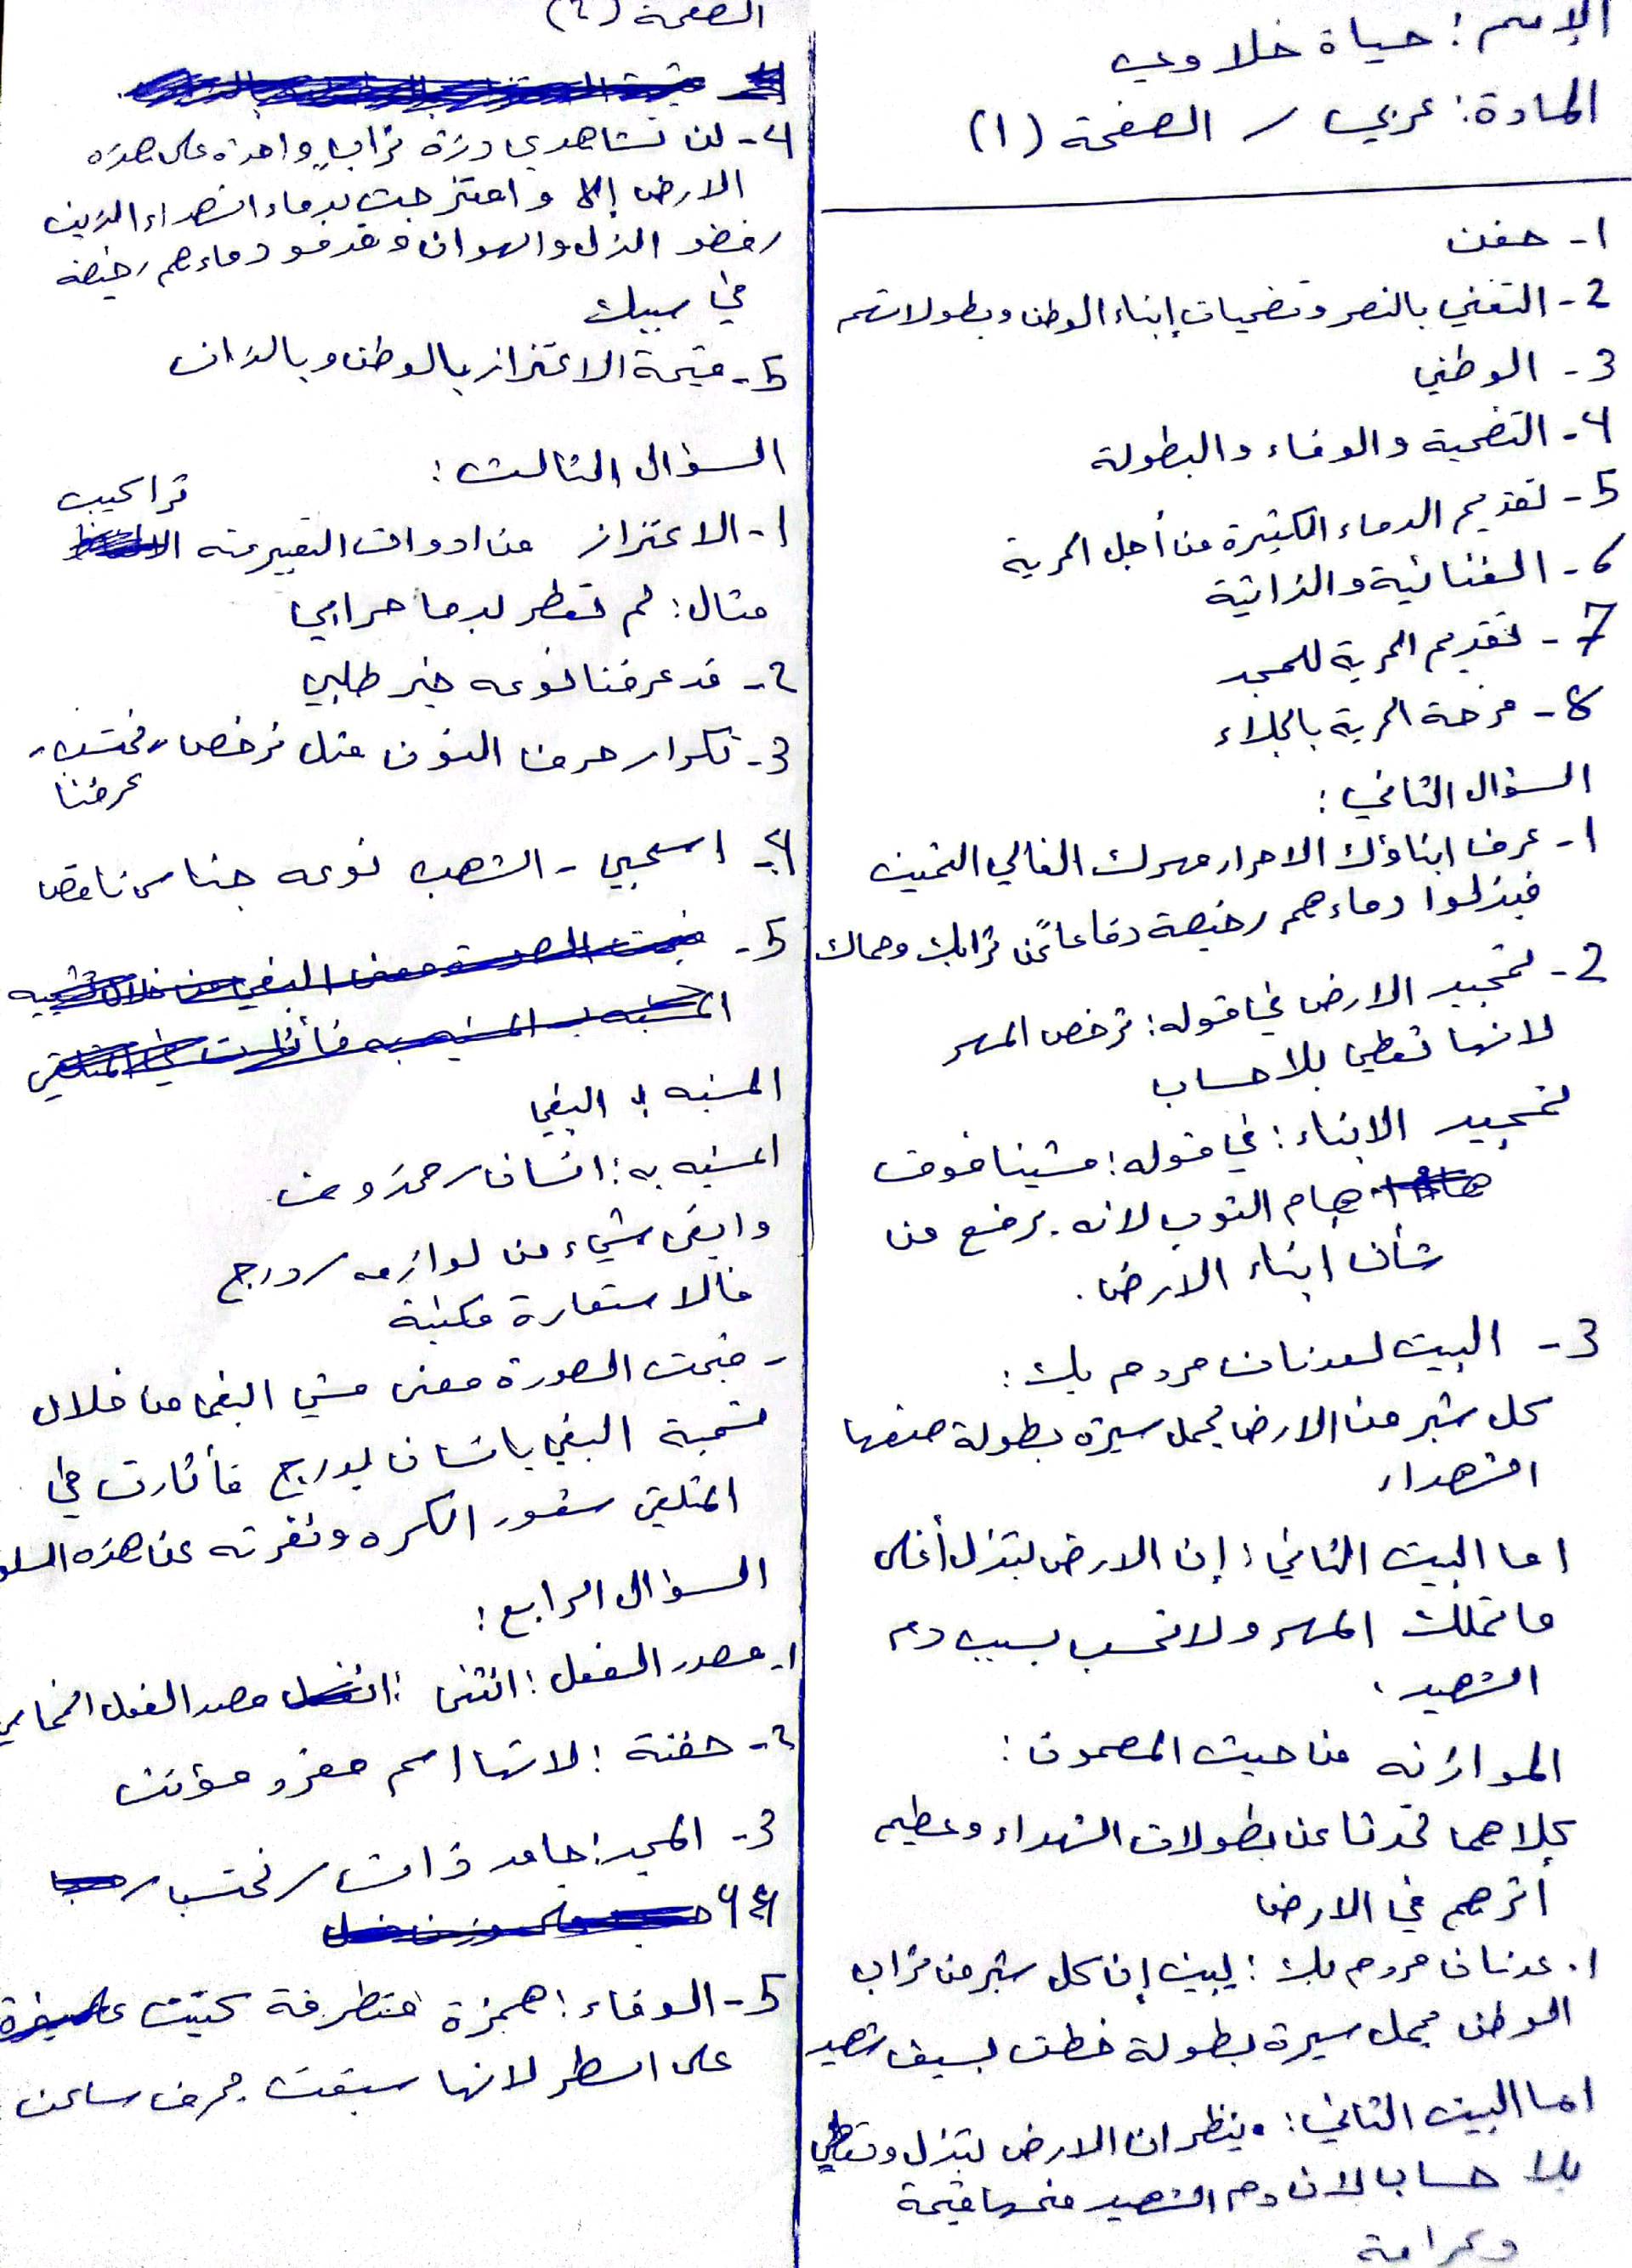 الإسم: حياة خلاوي
المادة: عربي / الصفحة (١)
1- حفن
2- التغني بالنصر وتضحيات إبناء الوطن وبطولاتهم
3- الوطني
4- التضحية والوفاء والبطولة
5- تقديم الدماء الكثيرة من أجل الحرية
6- الغنائية والذاتية
7- تقديم الحرية للمجد
8- فرحة الحرية بالجلاء
السؤال الثاني:
1- عرف ابناؤك الاحرار مهرك الغالي الثمين
فبذلوا دماءهم رخيصة دفاعاً عن ترابك وحماك
2- تمجيد الارض في قوله: ترخص المهر
لانها تعطي بلا حساب
تمجيد الابناء: في قوله: مشينا فوق
هام النوب لانه يرفع من
شأن ابناء الارض.
3- البيت لعدنان مردم بك:
كل شبر من الارض يحمل سيرة بطولة صنعها
الشهداء
اما البيت الثاني: إن الارض تبذل أغلى
ما تملك المهر ولا تحسب بسبب دم
الشهيد.
الموازنه من حيث المضمون:
كلاهما تحدثا عن بطولات الشهداء وعظيم
أثرهم في الارض
١. عدنان مردم بك: يبين إن كل شبر من تراب
الوطن يحمل سيرة بطولة خطت بسيف شهيد
اما البيت الثاني: ينظر ان الارض تبذل وتعطي
بلا حساب لان دم الشهيد منحها قيمة
وكرامة
الصفحة (٢)
4- لن تشاهدي ذرة ترابٍ واحدة على هذه
الارض إلا وامتزجت بدماء الشهداء الذين
رفضو الذل والهوان وقدمو دماءهم رخيصة
في سبيلك
5- قيمة الاعتزاز بالوطن وبالذات
السؤال الثالث:
1- الاعتزاز من ادوات التعبير عنه تراكيب
مثال: لم تعطر بدما حرابي
2- قد عرفنا نوعه خبر طلبي
3- تكرار حرف النون مثل ترخص، نحتسب،
عرفنا
4- اسحبي - الشهب نوعه جناس ناقص
5-
المشبه: البغي
المشبه به: انسان، محذوف
وابقى شيء من لوازمه، درج
فالاستعارة مكنية
- قبحت الصورة معنى مشي البغي من خلال
تشبيه البغي بانسان يدرج فأثارت في
المتلقي شعور الكره ونفرته عن هذه السلو
السؤال الرابع:
١- مصدر الفعل: انثنى: مصدر الفعل الخماسي
2- حفنة: لانها اسم مفرد مؤنث
3- المجد: جامد ذات / نحتسب /
4
5- الوفاء: همزة متطرفة كتبت
على السطر لانها سبقت بحرف ساكن